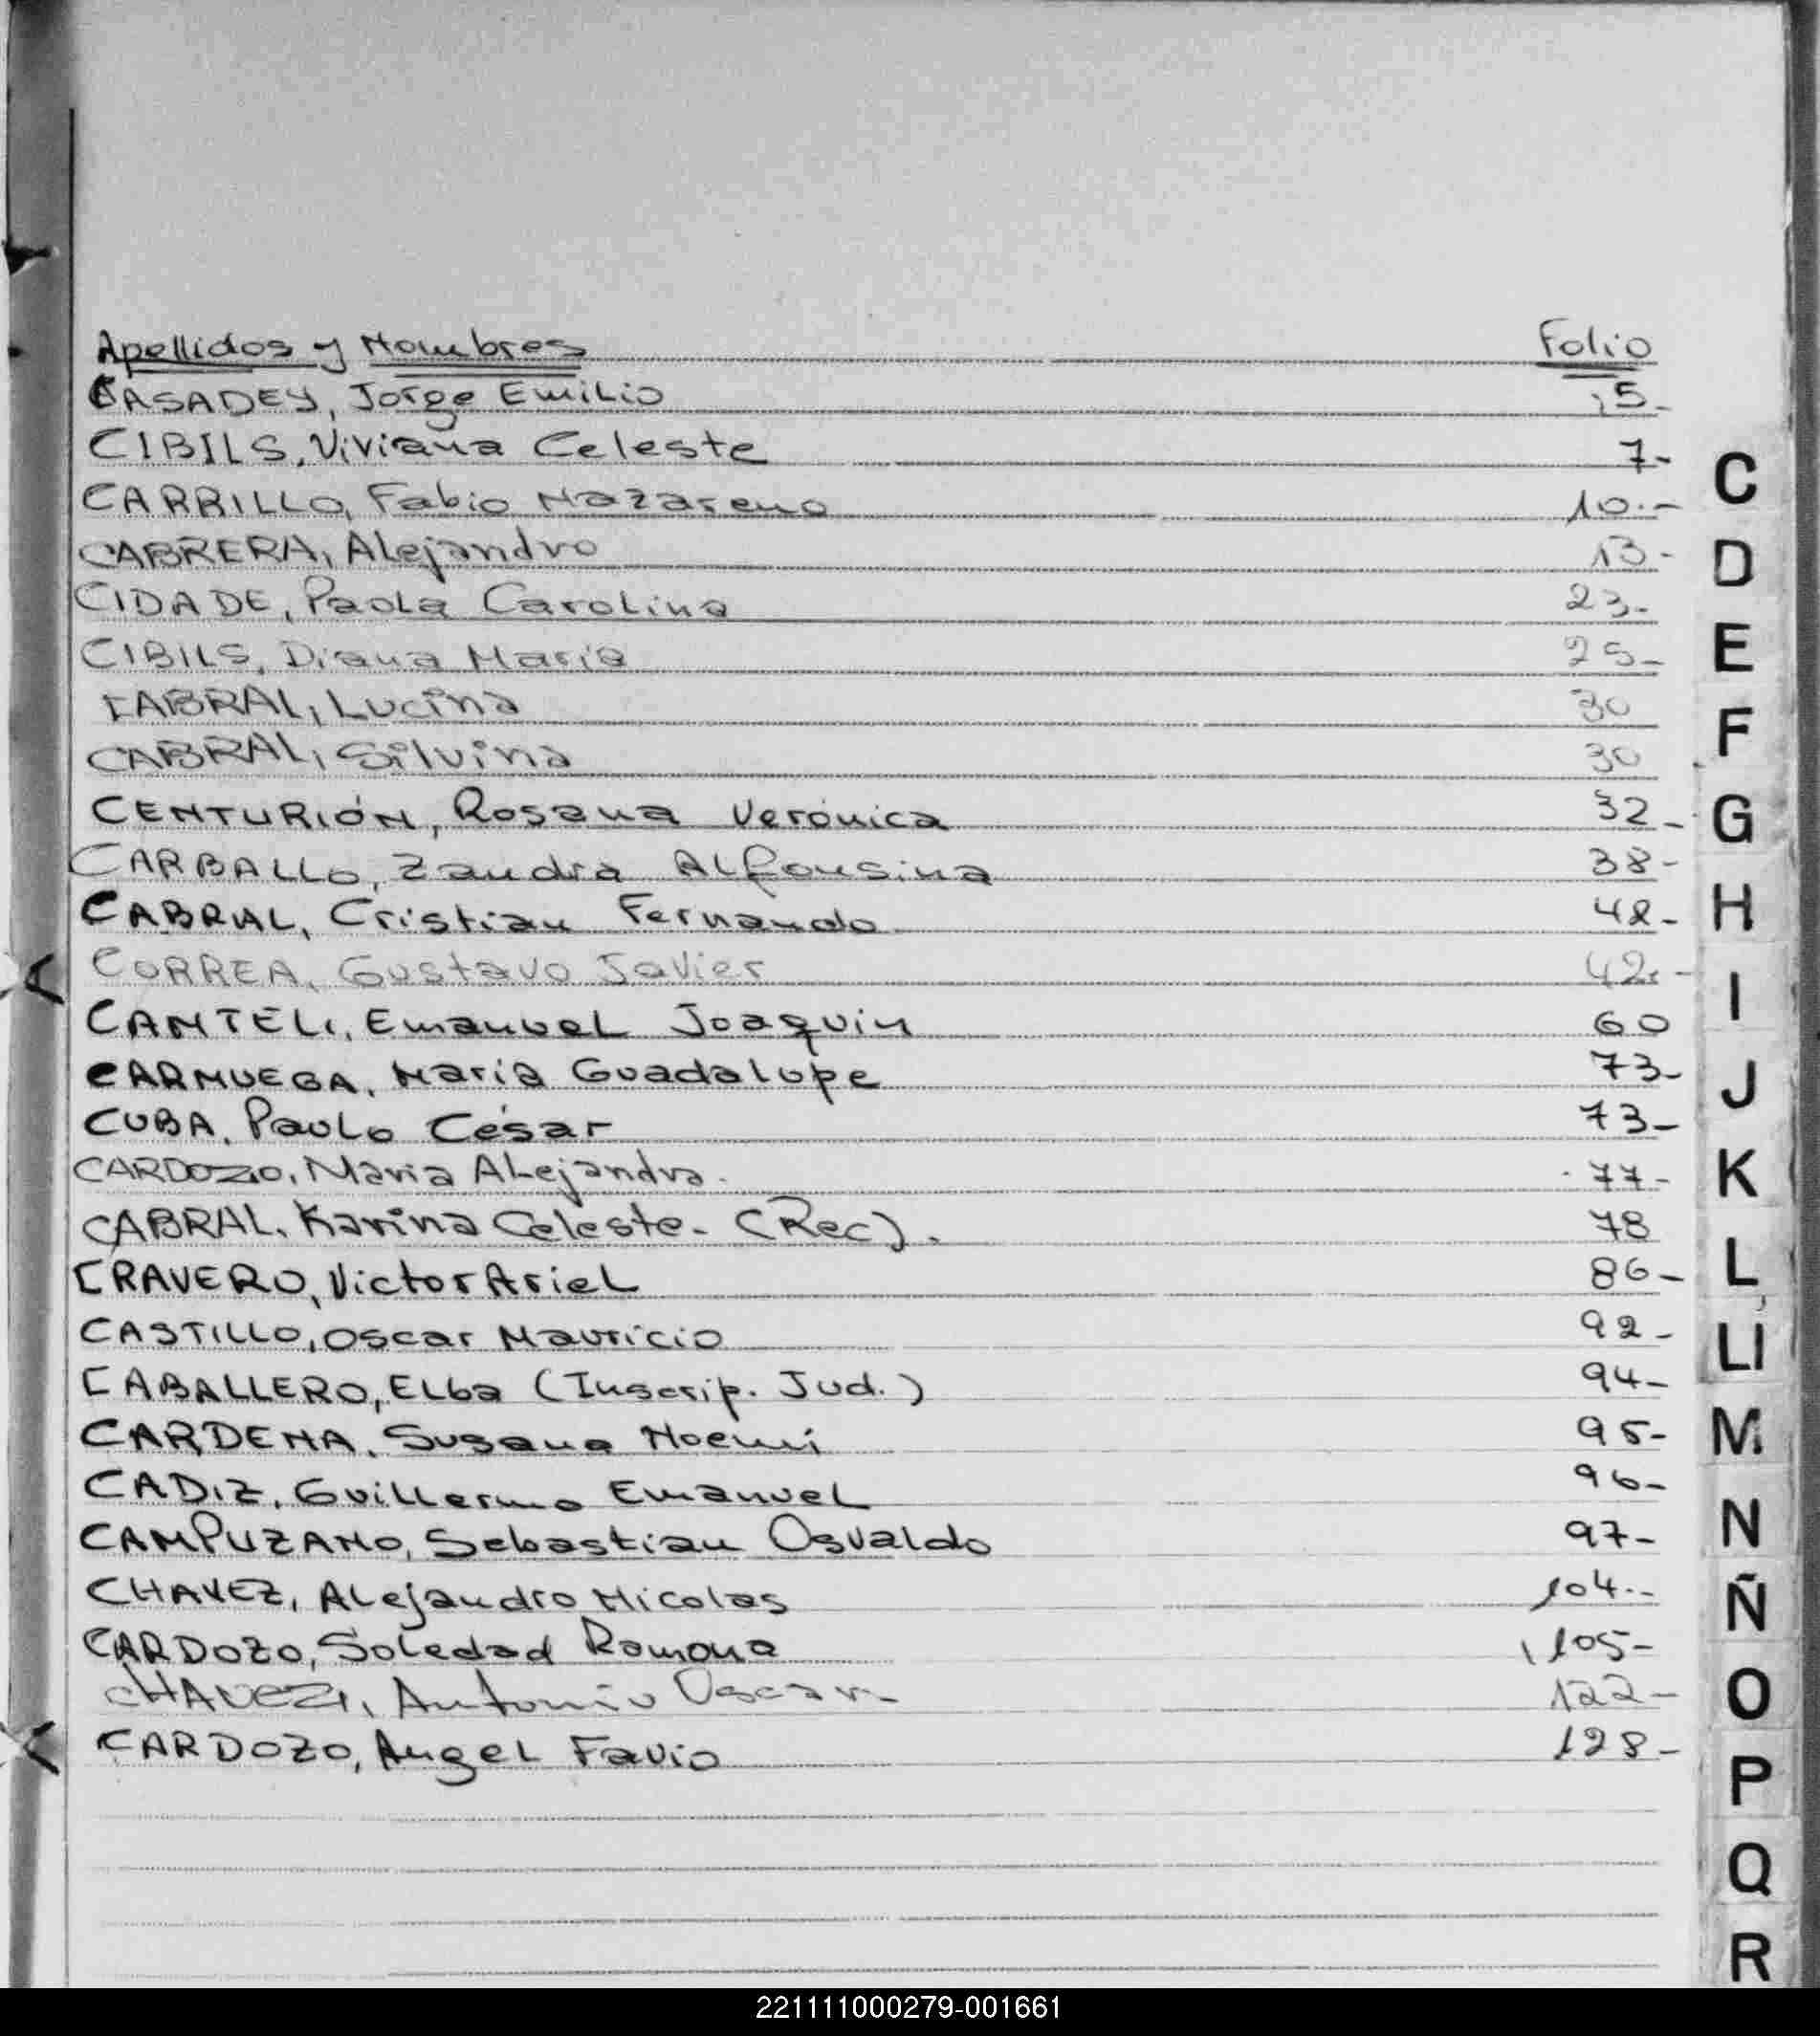 Apellidos y Nombres Folio
CASADEY, Jorge Emilio 5-
CIBILS, Viviana Celeste 7-
CARRILLO, Fabio Nazareno 10.-
CABRERA, Alejandro 13-
CIDADE, Paola Carolina 23-
CIBILS, Diana Maria 25-
CABRAL, Lucina 30
CABRAL, Silvina 30
CENTURIÓN, Rosana Verónica 32-
CARBALLO, Zandra Alfonsina 38-
CABRAL, Cristian Fernando 42-
CORREA, Gustavo Javier 42.-
CANTELI, Emanuel Joaquin 60
CARMUEGA, Maria Guadalupe 73-
CUBA, Paulo César 73-
CARDOZO, Maria Alejandra. 77-
CABRAL, Karina Celeste. (Rec). 78
CRAVERO, Victor Ariel 86-
CASTILLO, Oscar Mauricio 92-
CABALLERO, Elba (Inscrip. Jud.) 94-
CARDENA, Susana Noemi 95-
CADIZ, Guillermo Emanuel 96-
CAMPUZANO, Sebastian Osvaldo 97-
CHAVEZ, Alejandro Nicolas 104.-
CARDOZO, Soledad Ramona 105-
CHAVEZ, Antonio Oscar- 122-
CARDOZO, Angel Favio 128-
C
D
E
F
G
H
I
J
K
L
Ll
M
N
Ñ
O
P
Q
R
221111000279-001661